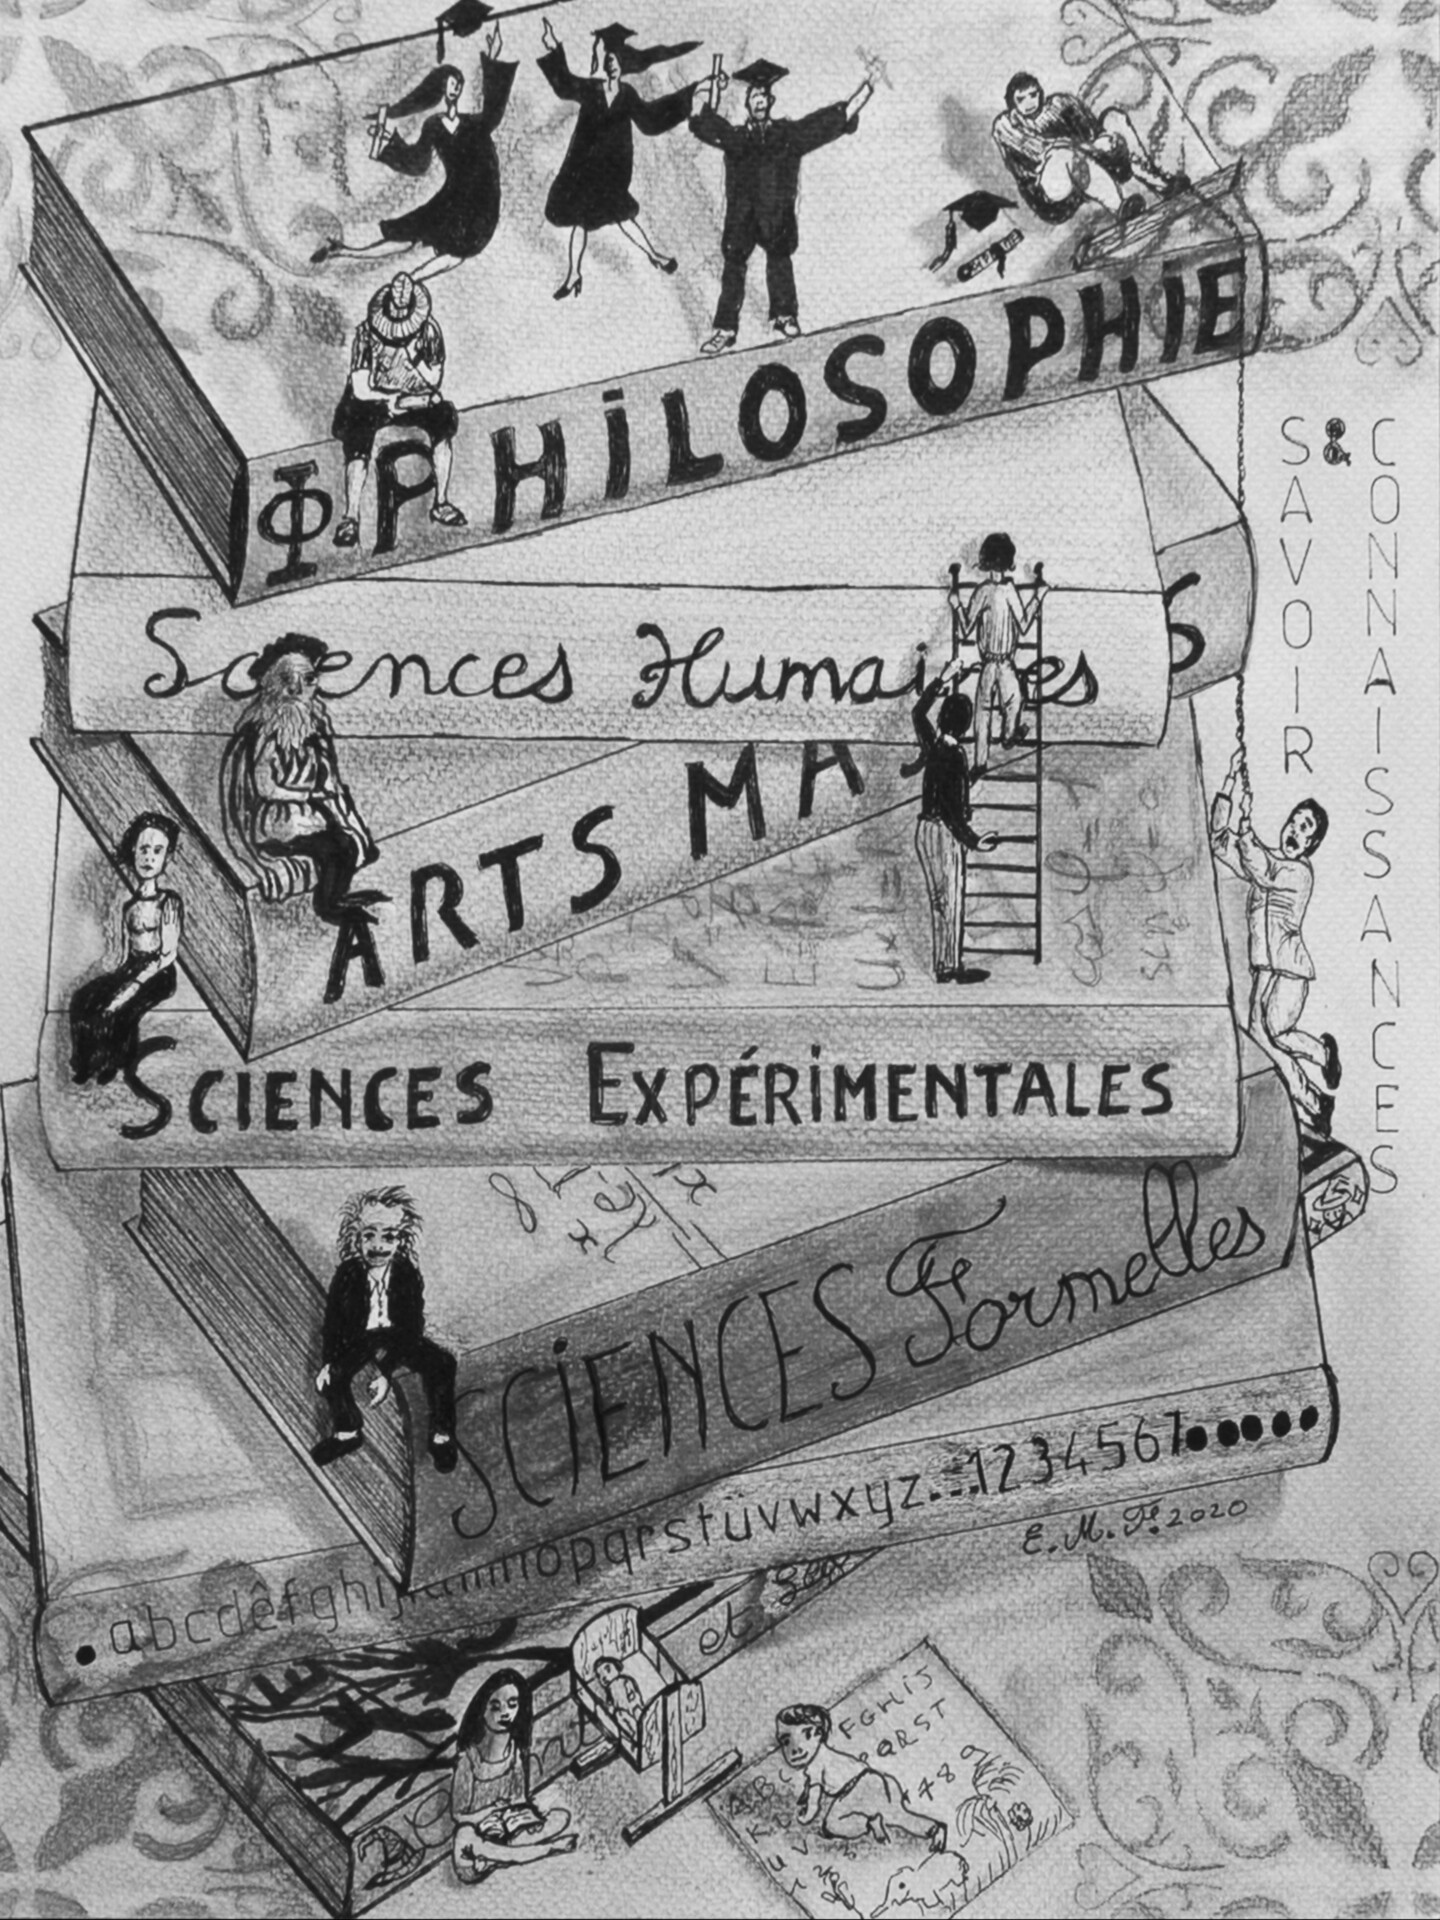 Φ PHiLOSOPHIE
SAVOIR
&
CONNAISSANCES
Sciences Humaines
ARTS MA S
SCIENCES EXPÉRIMENTALES
8
SCIENCES Formelles
.abcdêfghij opqrstüvwxyz...1234567.....
E. M. Fe. 2020
et
FGHIS
PQRST
+ 4 8 9